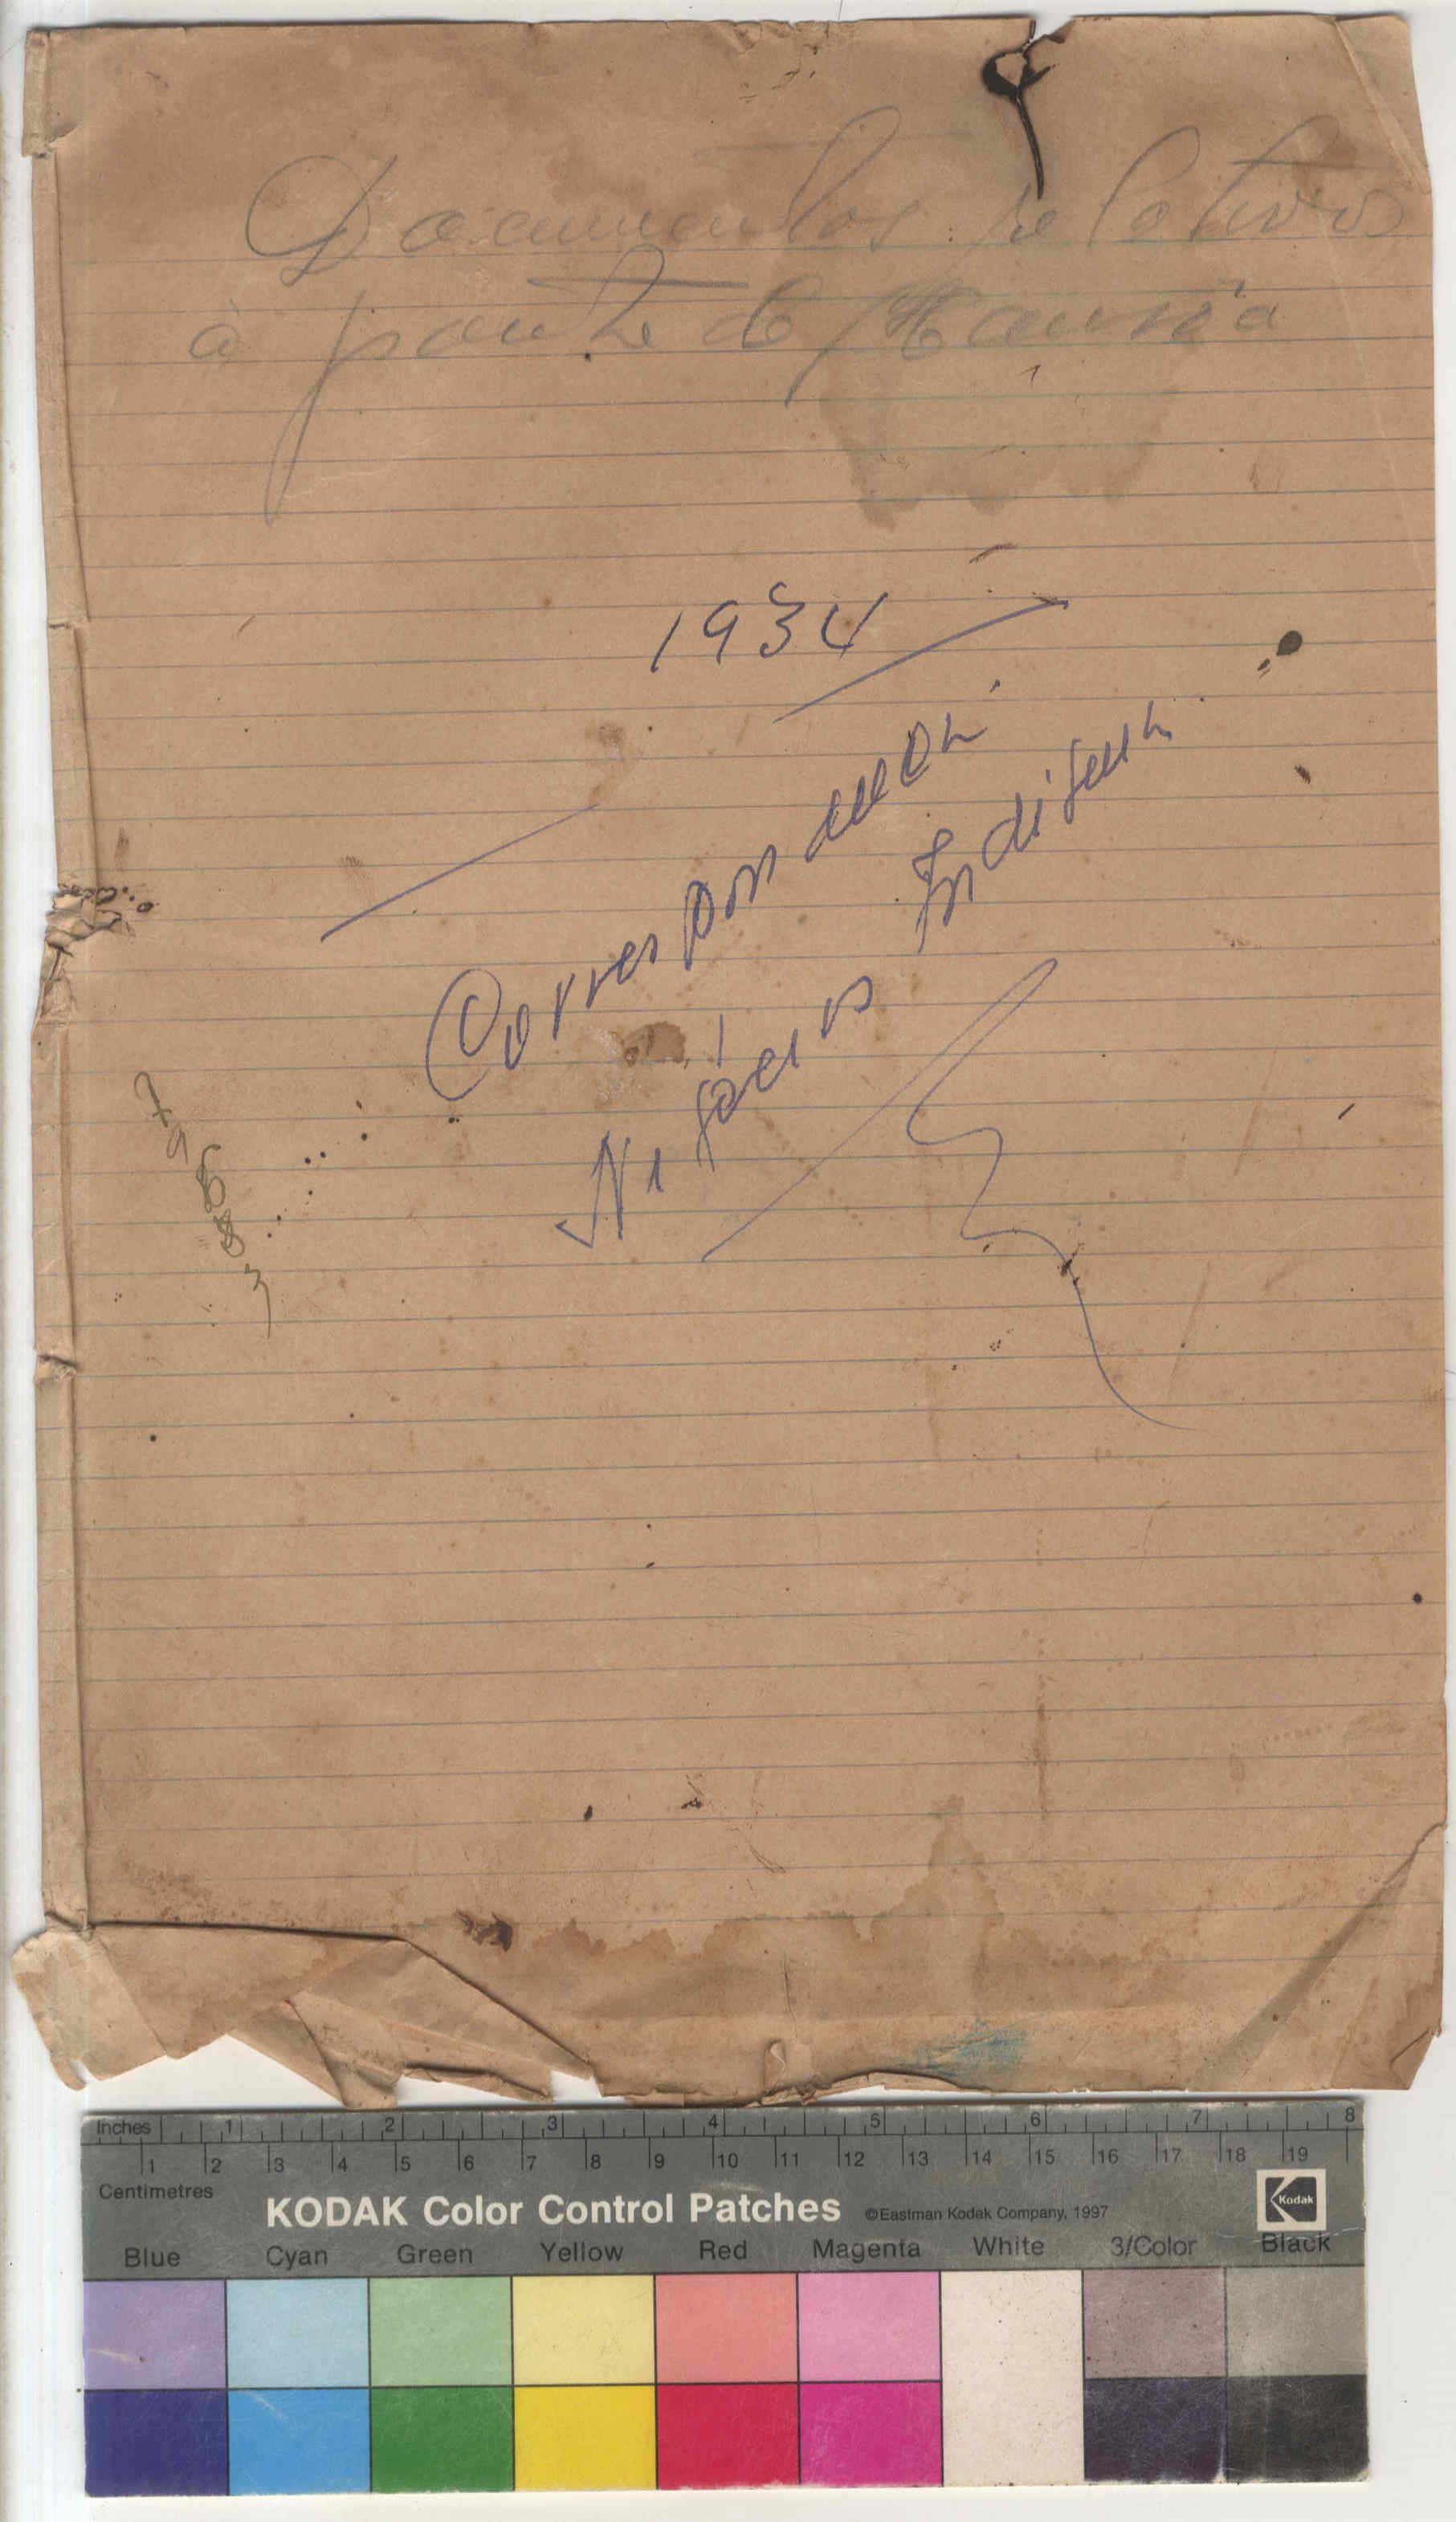 Documentos relativos
à ponte de
1934
Correspondenci
Negócios Indigen
Inches 1 2 3 4 5 6 7 8
1 2 3 4 5 6 7 8 9 10 11 12 13 14 15 16 17 18 19
Centimetres
KODAK Color Control Patches ©Eastman Kodak Company, 1997 Kodak
Blue Cyan Green Yellow Red Magenta White 3/Color Black